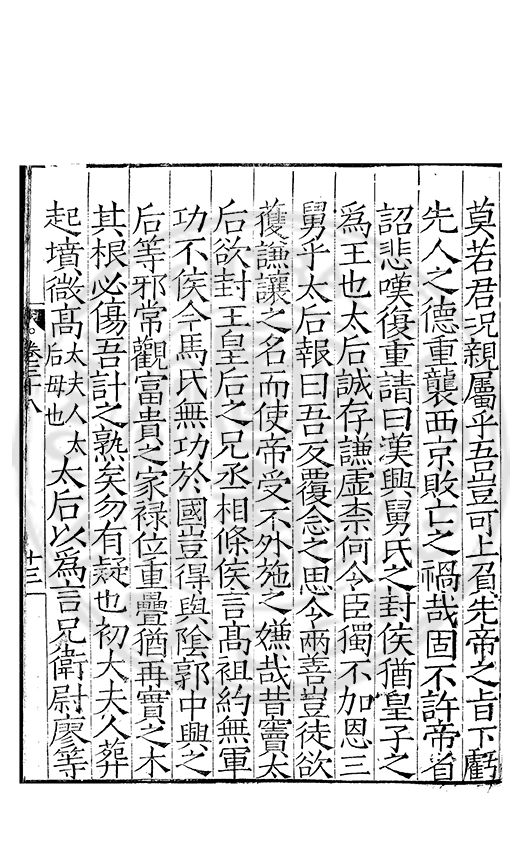 莫若君況親屬乎吾豈可上負先帝之旨下虧
先人之德重襲西京敗亡之禍哉固不許帝省
詔悲嘆復重請曰漢興舅氏之封侯猶皇子之
爲王也太后誠存謙虛柰何令臣獨不加恩三
舅乎太后報曰吾反覆念之思令兩善豈徒欲
獲謙讓之名而使帝受不外施之嫌哉昔竇太
后欲封王皇后之兄丞相條侯言髙祖約無軍
功不侯今馬氏無功於國豈得與陰郭中興之
后等邪常觀富貴之家禄位重疊猶再實之木
其根必傷吾計之熟矣勿有疑也初大夫人葬
起墳微髙太夫人太后母也太后以爲言兄衛尉廖等
卷三十八
十三